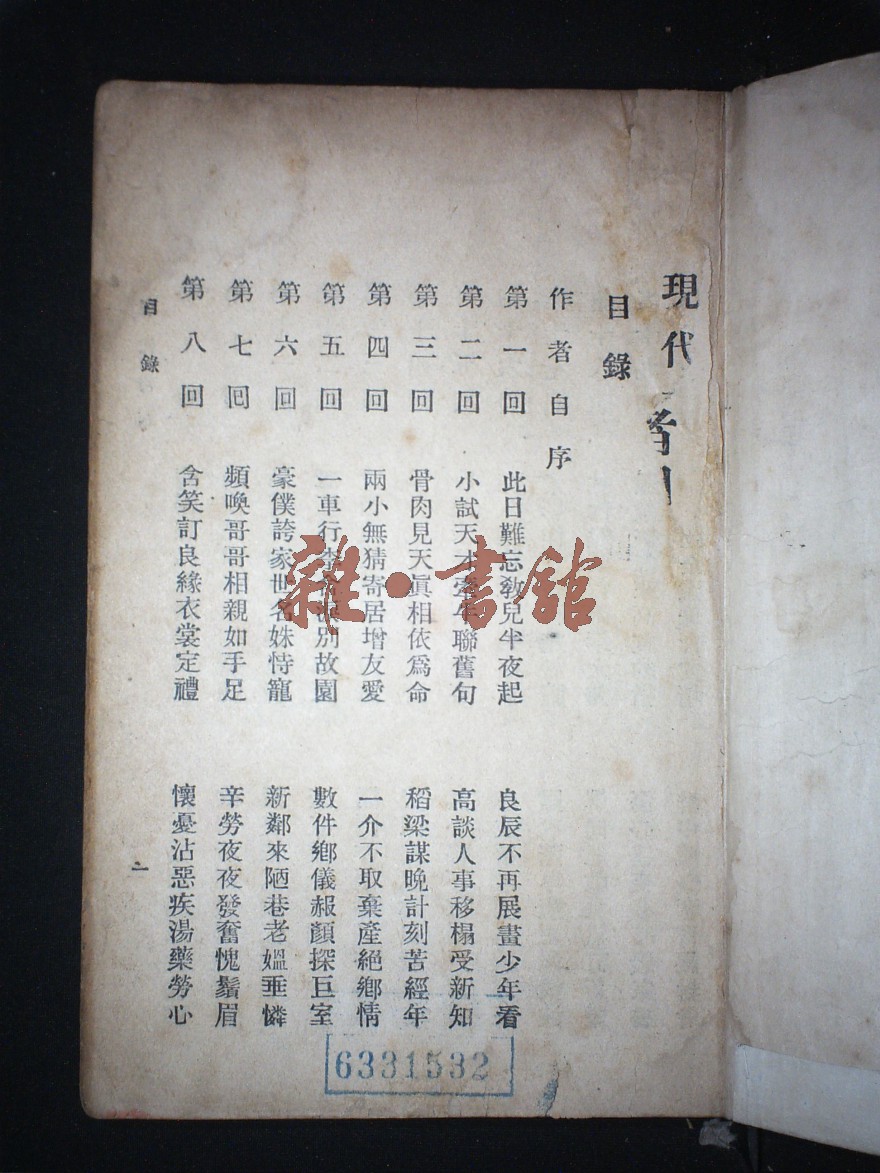 現代
目錄
作者自序
第一回 此日難忘敎兒半夜起 良辰不再展畫少年看
第二回 小試天才 年聯舊句 高談人事移榻受新知
第三回 骨肉見天眞相依爲命 稻梁謀晚計刻苦經年
第四回 兩小無猜寄居增友愛 一介不取棄產絕鄉情
第五回 一車行李 別故園 數件鄉儀赧顏探巨室
第六回 豪僕誇家世名姝恃寵 新鄰來陋巷老嫗垂憐
第七囘 頻喚哥哥相親如手足 辛勞夜夜發奮愧鬚眉
第八回 含笑訂良緣衣裳定禮 懷憂沾惡疾湯藥勞心
目錄
一
雜·書館
6331532